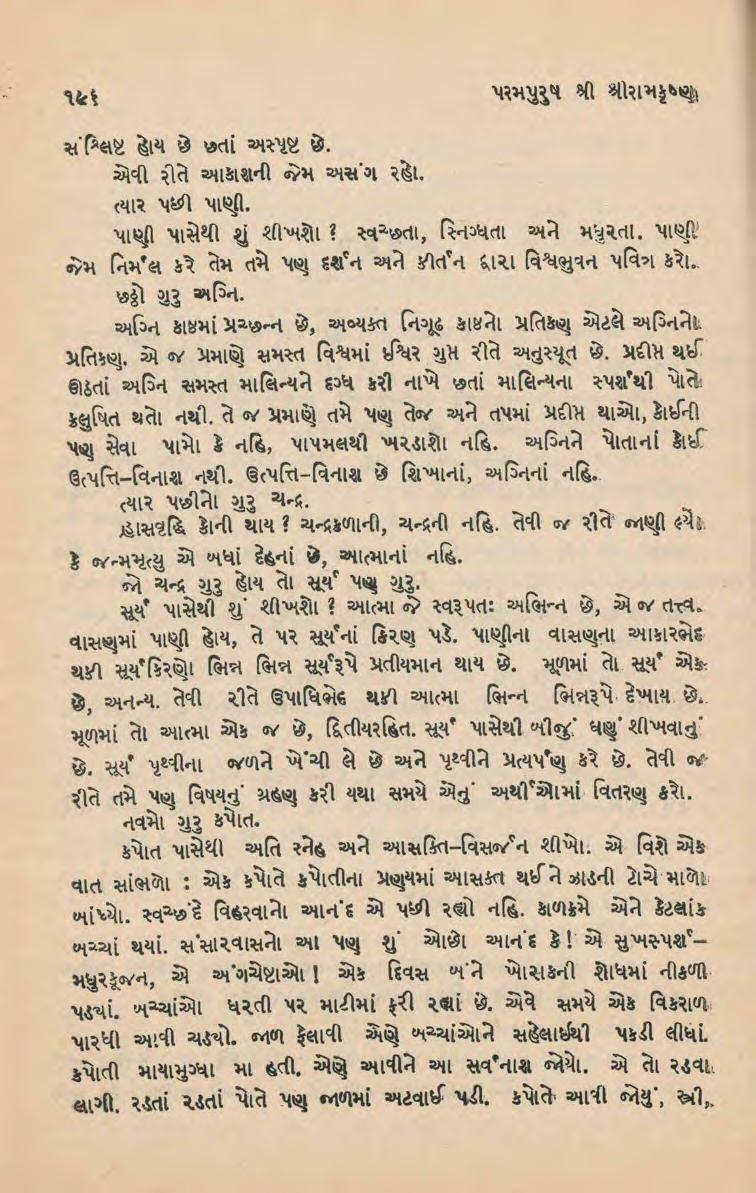 ૧૯૬ પરમપુરુષ શ્રી શ્રીરામકૃષ્ણ
સંશ્લિષ્ટ હોય છે છતાં અસ્પૃષ્ટ છે.
એવી રીતે આકાશની જેમ અસંગ રહો.
ત્યાર પછી પાણી.
પાણી પાસેથી શું શીખશો ? સ્વચ્છતા, સ્નિગ્ધતા અને મધુરતા. પાણી
જેમ નિર્મલ કરે તેમ તમે પણ દર્શન અને કીર્તન દ્વારા વિશ્વભુવન પવિત્ર કરો.
છઠ્ઠો ગુરુ અગ્નિ.
અગ્નિ કાષ્ઠમાં પ્રચ્છન્ન છે, અવ્યક્ત નિગૂઢ કાષ્ઠનો પ્રતિકણ એટલે અગ્નિનો
પ્રતિકણ. એ જ પ્રમાણે સમસ્ત વિશ્વમાં ઈશ્વર ગુપ્ત રીતે અનુસ્યૂત છે. પ્રદીપ્ત થઈ
ઊઠતાં અગ્નિ સમસ્ત માલિન્યને દગ્ધ કરી નાખે છતાં માલિન્યના સ્પર્શથી પોતે
કલુષિત થતો નથી. તે જ પ્રમાણે તમે પણ તેજ અને તપમાં પ્રદીપ્ત થાઓ, કોઈની
પણ સેવા પામો કે નહિ, પાપમલથી ખરડાશો નહિ. અગ્નિને પોતાનાં કોઈ
ઉત્પત્તિ–વિનાશ નથી. ઉત્પત્તિ–વિનાશ છે શિખાનાં, અગ્નિનાં નહિ.
ત્યાર પછીનો ગુરુ ચન્દ્ર.
હ્રાસવૃદ્ધિ કોની થાય ? ચન્દ્રકળાની, ચન્દ્રની નહિ. તેવી જ રીતે જાણી લ્યો
કે જન્મમૃત્યુ એ બધાં દેહનાં છે, આત્માનાં નહિ.
જો ચન્દ્ર ગુરુ હોય તો સૂર્ય પણ ગુરુ.
સૂર્ય પાસેથી શું શીખશો ? આત્મા જે સ્વરૂપતઃ અભિન્ન છે, એ જ તત્ત્વ.
વાસણમાં પાણી હોય, તે પર સૂર્યનાં કિરણ પડે. પાણીના વાસણના આકારભેદ
થકી સૂર્યકિરણો ભિન્ન ભિન્ન સૂર્યરૂપે પ્રતીયમાન થાય છે. મૂળમાં તો સૂર્ય એક
છે, અનન્ય. તેવી રીતે ઉપાધિભેદ થકી આત્મા ભિન્ન ભિન્નરૂપે દેખાય છે.
મૂળમાં તો આત્મા એક જ છે, દ્વિતીયરહિત. સૂર્ય પાસેથી બીજું ઘણું શીખવાનું
છે. સૂર્ય પૃથ્વીના જળને ખેંચી લે છે અને પૃથ્વીને પ્રત્યર્પણ કરે છે. તેવી જ
રીતે તમે પણ વિષયનું ગ્રહણ કરી યથા સમયે એનું અર્થીઓમાં વિતરણ કરો.
નવમો ગુરુ કપોત.
કપોત પાસેથી અતિ સ્નેહ અને આસક્તિ–વિસર્જન શીખો. એ વિશે એક
વાત સાંભળો : એક કપોતે કપોતીના પ્રણયમાં આસક્ત થઈને ઝાડની ટોચે માળો
બાંધ્યો. સ્વચ્છંદે વિહરવાનો આનંદ એ પછી રહ્યો નહિ. કાળક્રમે એને કેટલાંક
બચ્ચાં થયાં. સંસારવાસનો આ પણ શું ઓછો આનંદ કે! એ સુખસ્પર્શ–
મધુરકૂજન, એ અંગચેષ્ટાઓ ! એક દિવસ બંને ખોરાકની શોધમાં નીકળી
પડ્યાં. બચ્ચાંઓ ધરતી પર માટીમાં ફરી રહ્યાં છે. એવે સમયે એક વિકરાળ
પારધી આવી ચડ્યો. જાળ ફેલાવી એણે બચ્ચાંઓને સહેલાઈથી પકડી લીધાં.
કપોતી માયામુગ્ધા મા હતી. એણે આવીને આ સર્વનાશ જોયો. એ તો રડવા
લાગી. રડતાં રડતાં પોતે પણ જાળમાં અટવાઈ પડી. કપોતે આવી જોયું, સ્ત્રી,